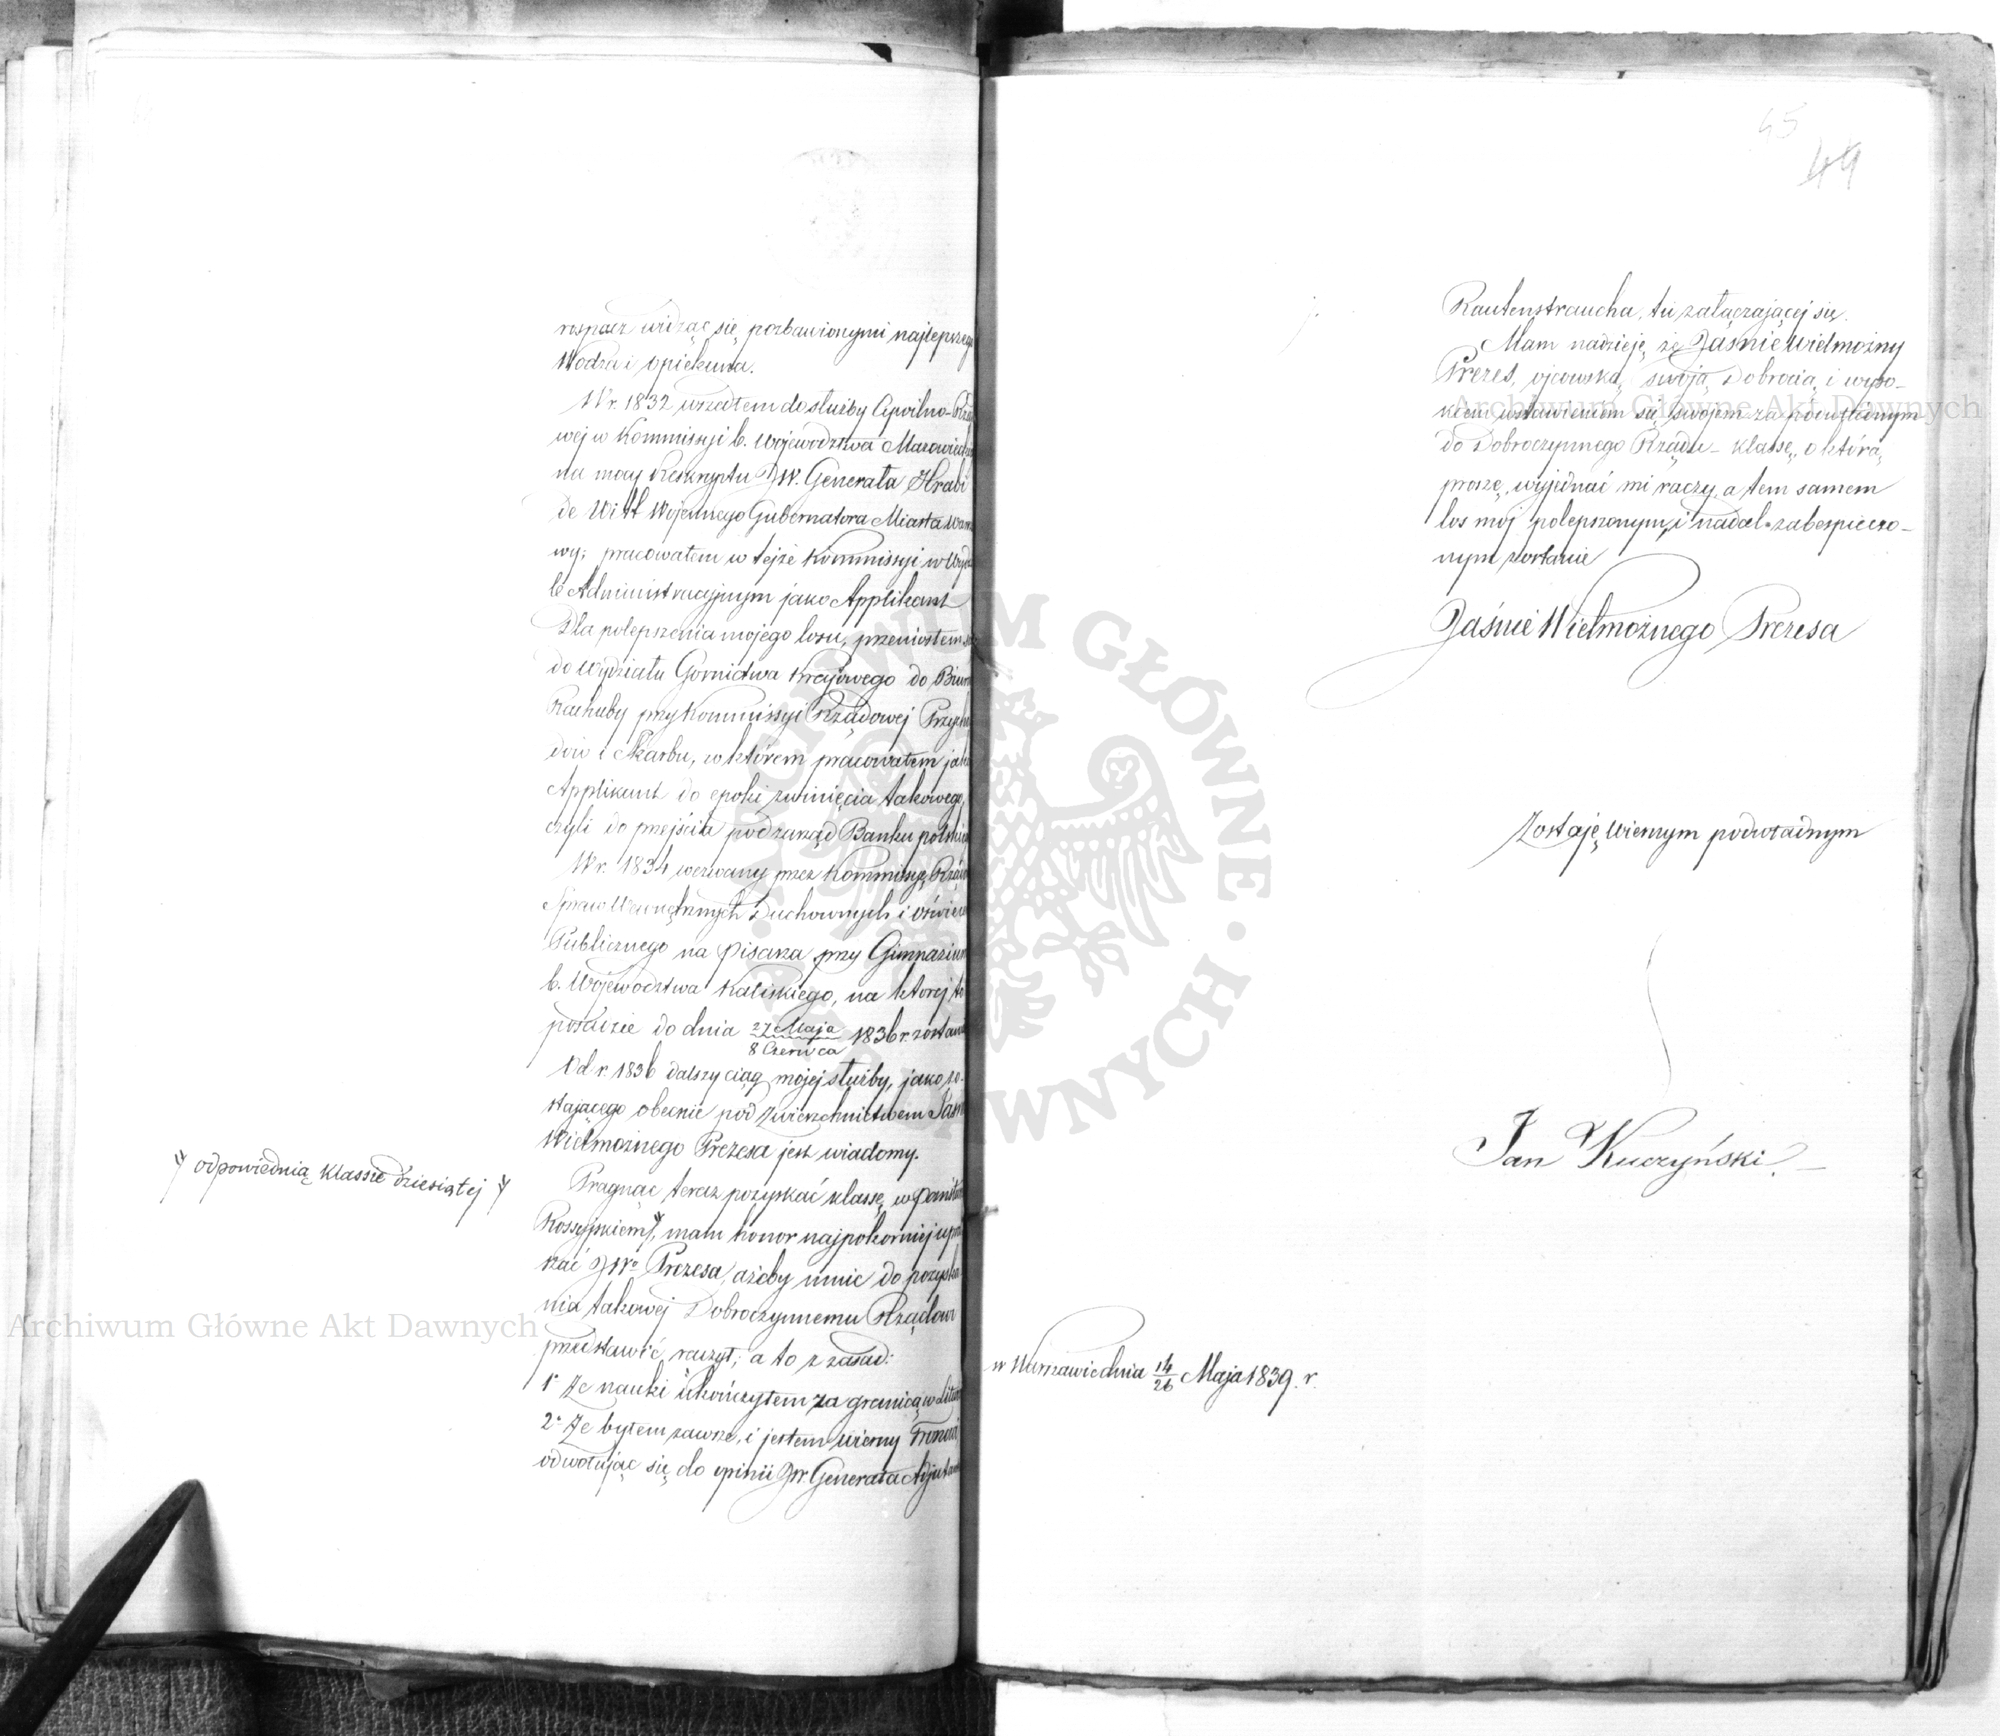 rospacz widząc się pozbawionymi najlepszego
Wodza i opiekuna.
W r. 1832 wszedłem do służby Cywilno-Rzą
wej w Kommissyi b. Województwa Mazowieckie
na mocy Reskryptu JW. Generała Hrabi
de Witt Wojennego Gubernatora Miasta Warsza
wy; pracowałem w tejże Kommissyi w Wydzia
le Administracyjnym jako Applikant
Dla polepszenia mojego losu, przeniosłem się
do Wydziału Górnictwa Krajowego do Biura
Rachuby przy Kommissyi Rządowej Przycho
dów i Skarbu, w którem pracowałem jako
Applikant do epoki zwinięcia takowego,
czyli do przejścia pod zarząd Banku polskie
W r. 1834 wezwany przez Kommissyę Rządo
Spraw Wewnętrznych Duchownych i Oświece
Publicznego na pisarza przy Gimnazium
b. Województwa Kaliskiego, na ktorej to
posadzie do dnia 27 Maja / 8 Czerwca 1836 r. zostaw
Od r. 1836 dalszy ciąg mojej służby, jako zo-
stającego obecnie pod zwierzchnictwem Jaśn
Wielmożnego Prezesa jest wiadomy.
Pragnąc teraz pozyskać klassę w Państw
Rossyjskiem, mam honor najpokorniej upra
szać JWo Prezesa, ażeby mnie do pozyska
nia takowej Dobroczynnemu Rządowi
przedstawić raczył; a to z zasad:
1o Że nauki ukończyłem za granicą w
2o Że byłem zawsze, i jestem wierny Tronowi,
odwołując się do opinii JW Generała Adjutant
odpowiednią klassie dziesiątej
45
44
Rautenstraucha, tu załączającej się.
Mam nadzieję, że Jaśnie Wielmożny
Prezes, ojcowską swoją Dobrocią, i wyso-
kiem wstawieniem się swojem za
do Dobroczynnego Rządu - klassę, o którą
proszę, wyjednać mi raczy, a tem samem
los mój polepszonym, i nadal zabespieczo-
nym zostanie
Jaśnie Wielmożnego Prezesa
Zostaję wiernym podwładnym
Jan Kuczyński
w Warszawie dnia 14/26 Maja 1839. r.
Archiwum Główne Akt Dawnych
Archiwum Główne Akt Dawnych
ARCHIWUM GŁÓWNE AKT DAWNYCH